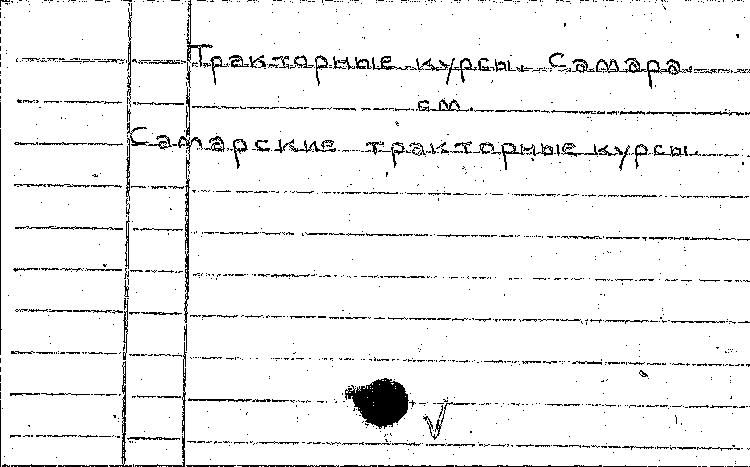 Тракторные курсы. Самара.
см.
Самарские тракторные курсы.